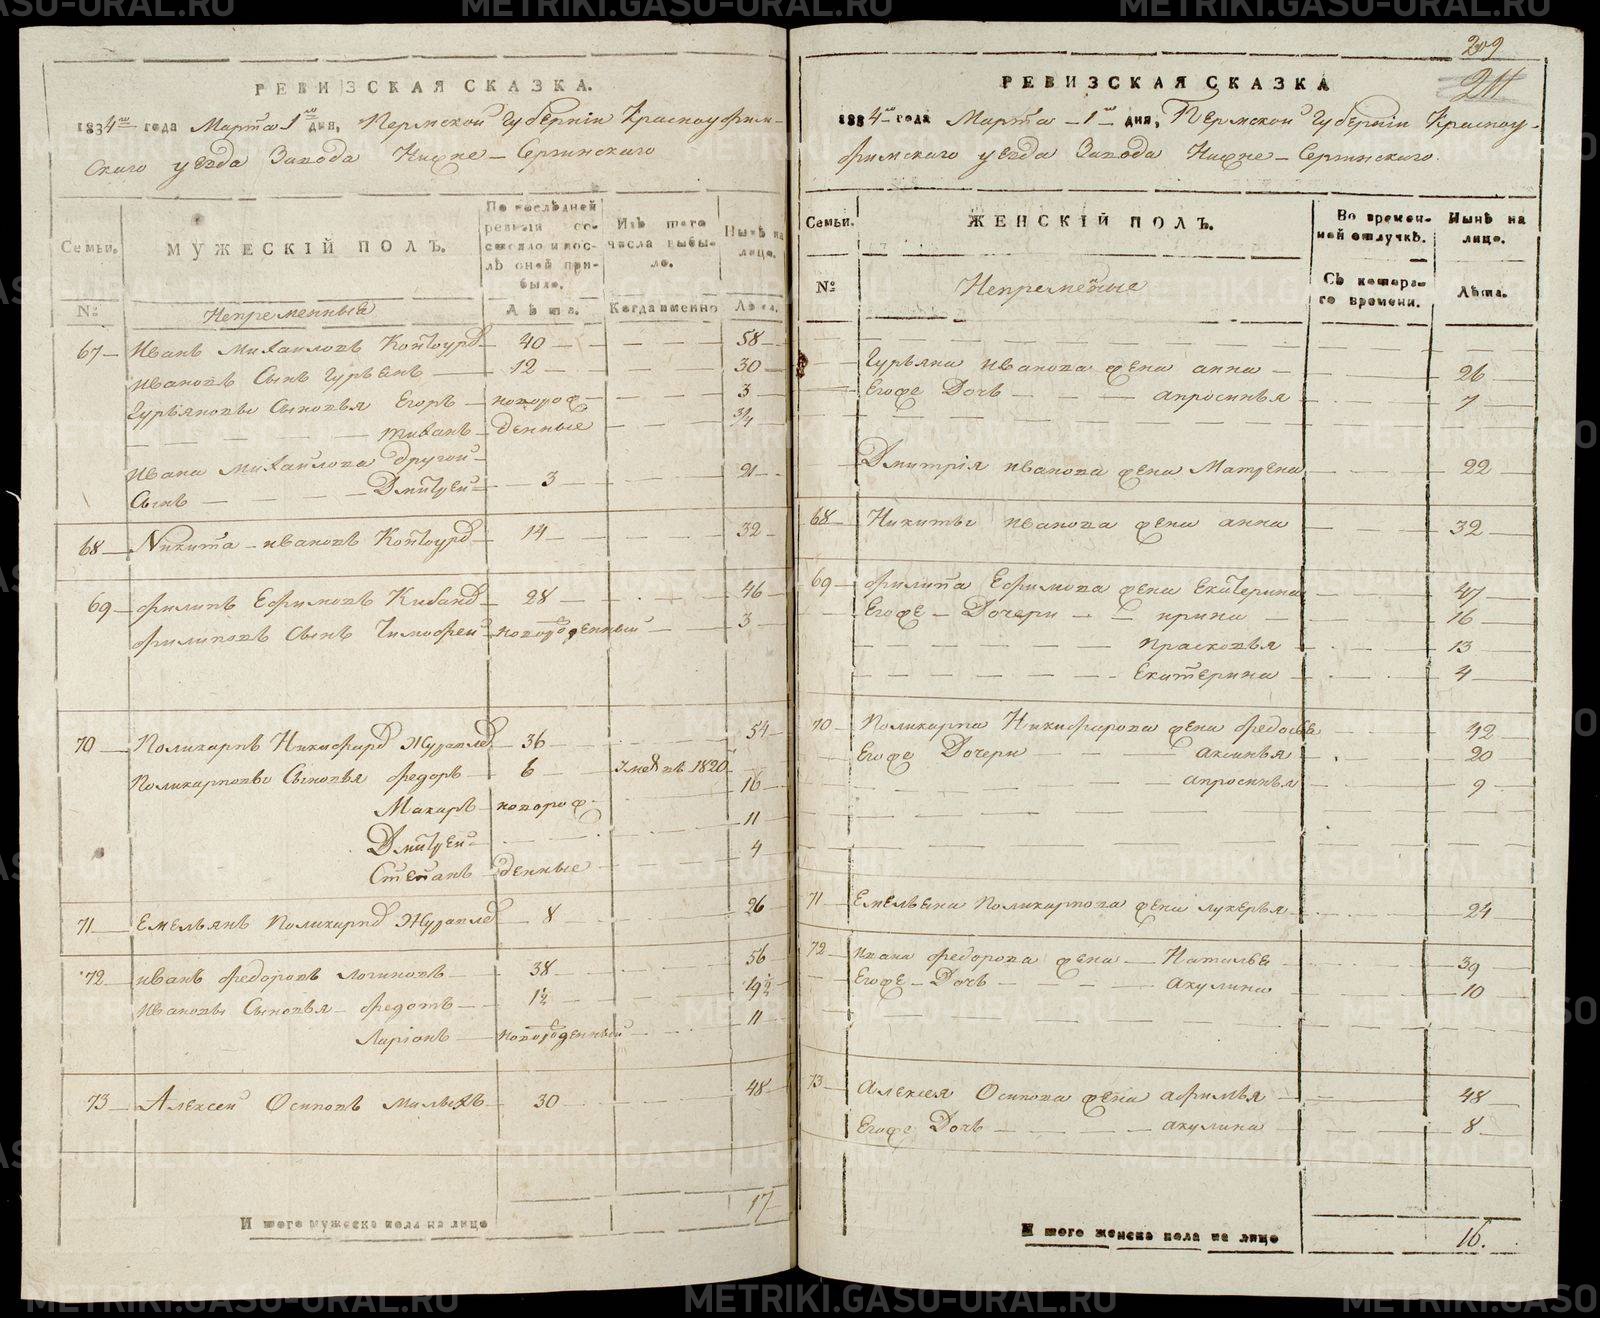 РЕВИЗСКАЯ СКАЗКА.
1834го года Марта 1го дня, Пермской Губернiи Красноуфим-
скаго уезда Завода Нижне-Сергинскаго
Семьи.
МУЖЕСКIЙ ПОЛЪ.
По послѣдней ревизiи состояло и послѣ оной прибыло.
Изъ того числа выбыло.
Нынѣ на лицо.
№
Непременныя
Лѣта.
Когда именно
Лѣта.
67 Иванъ Михаиловъ 40 58
Ивановъ Сынъ Гурьянъ 12 30
Гурьяновы Сыновья Егоръ новорож- 3
денные 3/4
Ивана Михаилова другой
Сынъ Дмитрей 3 21
68 Никита Ивановъ 14 32
69 Филипъ Ефимовъ 28 46
Филиповъ Сынъ Тимофей новорожденный 3
70 Поликарпъ 36 54
Поликарповы Сыновья Федоръ 6 1820
Макаръ новорож- 16
Дмитрей 11
Степанъ денные 4
71 Емельянъ 8 26
72 Иванъ Федоровъ Логиновъ 38 56
Ивановы Сыновья Федотъ 1½ 19½
Ларiонъ новорожденный 11
73 Алексей Осиповъ 30 48
И того мужеска пола на лицо 17
209
211
РЕВИЗСКАЯ СКАЗКА
1834го года Марта 1го дня, Пермской Губернiи Красноу-
фимскаго уезда Завода Нижне-Сергинскаго.
Семьи.
ЖЕНСКIЙ ПОЛЪ.
Во временной отлучкѣ.
Нынѣ на лицо.
№
Непременные
Съ котораго времени.
Лѣта.
Гурьяна Иванова жена Анна 26
Егоже Дочь Апросинья 7
Дмитрiя Иванова жена Матрена 22
68 Никиты Иванова жена Анна 32
69 Филипа Ефимова жена Екатерина 47
Егоже Дочери Ирина 16
Прасковья 13
Екатерина 4
70 Поликарпа Никифорова жена Федосья 42
Егоже Дочери Аксинья 20
Апросинья 9
71 Емельяна Поликарпова жена Лукерья 24
72 Ивана Федорова жена Наталья 39
Егоже Дочь Акулина 10
73 Алексея Осипова жена Афимья 48
Егоже Дочь Акулина 8
И того женска пола на лицо 16.
METRIKI.GASO-URAL.RU